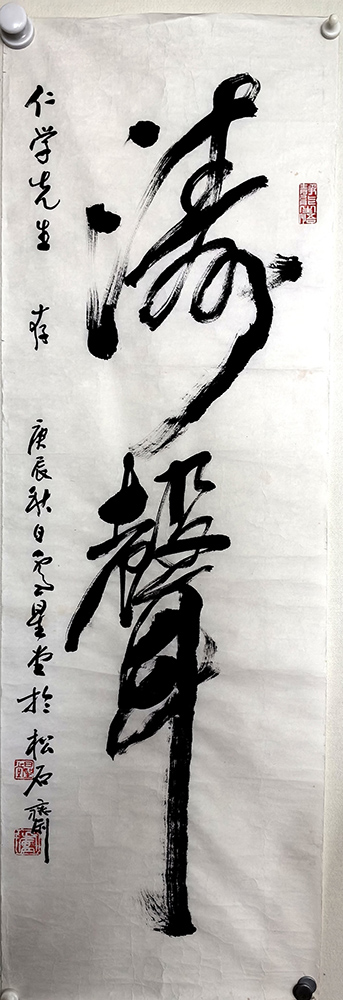 涛聲
仁学先生 存
庚辰秋日 星堂於松石齋